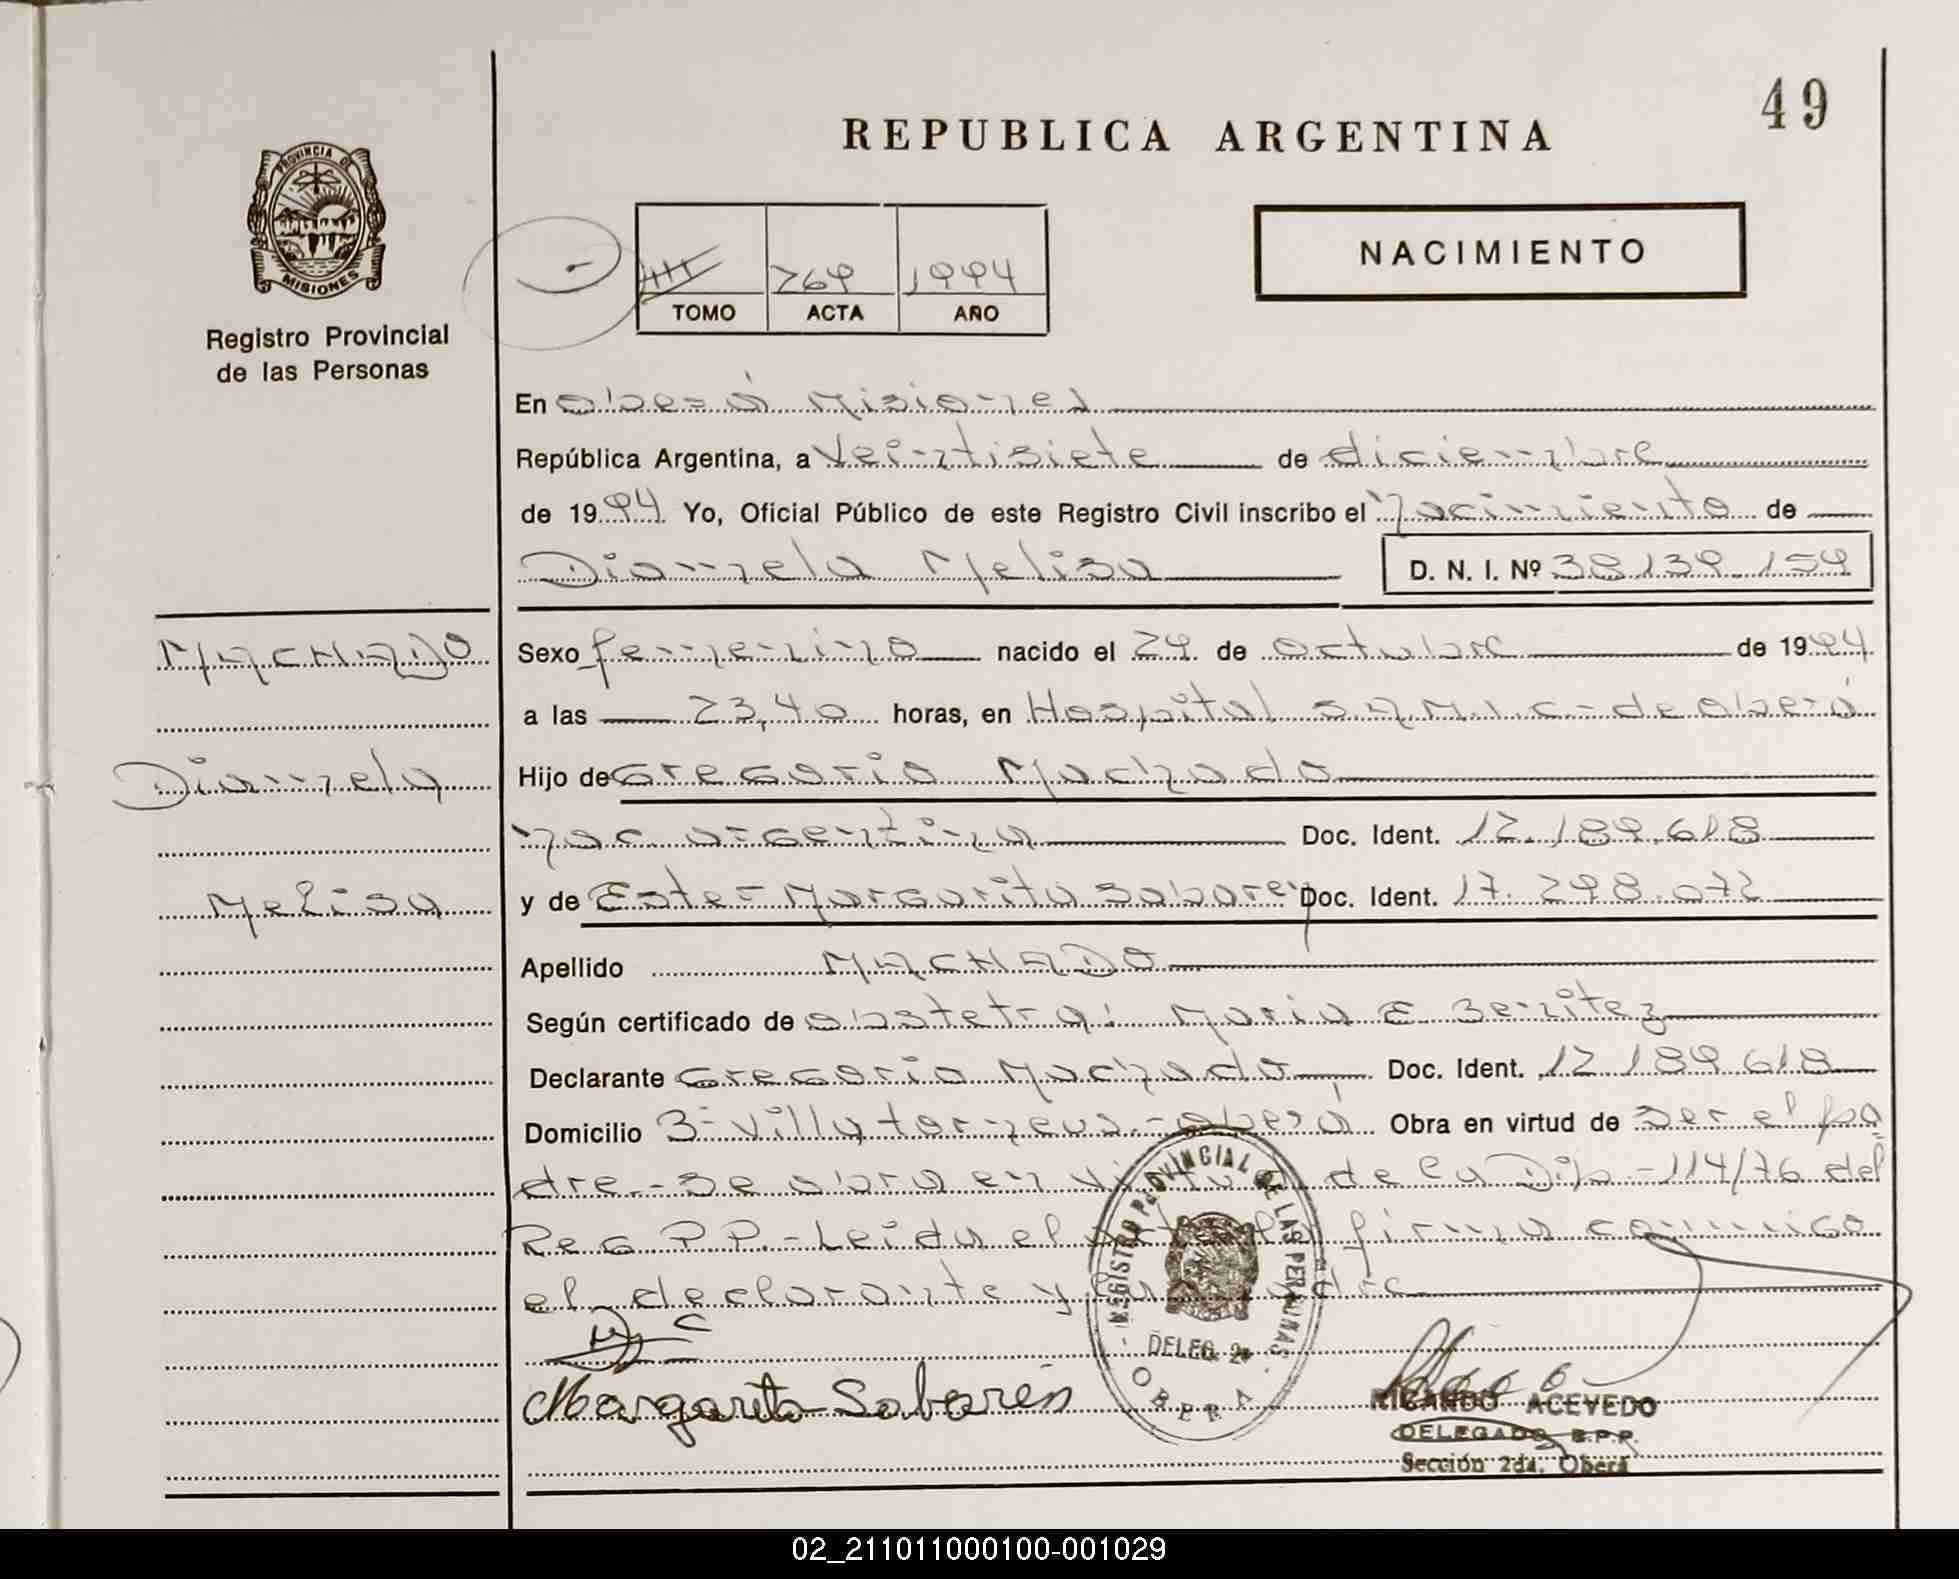 49
REPUBLICA ARGENTINA
PROVINCIA DE
MISIONES
Registro Provincial
de las Personas
NACIMIENTO
269 1994
TOMO ACTA AÑO
En Oberá Misiones
República Argentina, a Veintisiete de diciembre
de 1994 Yo, Oficial Público de este Registro Civil inscribo el Nacimiento de
Diamela Melisa D. N. I. Nº 38.139.159
MACHADO
Diamela
Melisa
Sexo femenino nacido el 29 de octubre de 1994
a las 23,40 horas, en Hospital S.A.M.I.C- de Oberá
Hijo de Gregorio Machado
nac argentina Doc. Ident. 12.189.618
y de Ester Margarita Sabares Doc. Ident. 17.298.072
Apellido MACHADO
Según certificado de obstetra: Maria E Benitez
Declarante Gregorio Machado, Doc. Ident. 12.189.618
Domicilio 3- Villa torneus.- Oberá Obra en virtud de ser el pa
dre.- Se obra en virtud de la Disp.-114/76 del
Reg P.P.- Leida el acta la firma conmigo
el declarante y la madre
Margarita Sabares
REGISTRO PROVINCIAL DE LAS PERSONAS
DELEG. 2ª
OBERA
RICARDO ACEVEDO
DELEGADO R.P.P.
Sección 2da. Oberá
02_211011000100-001029